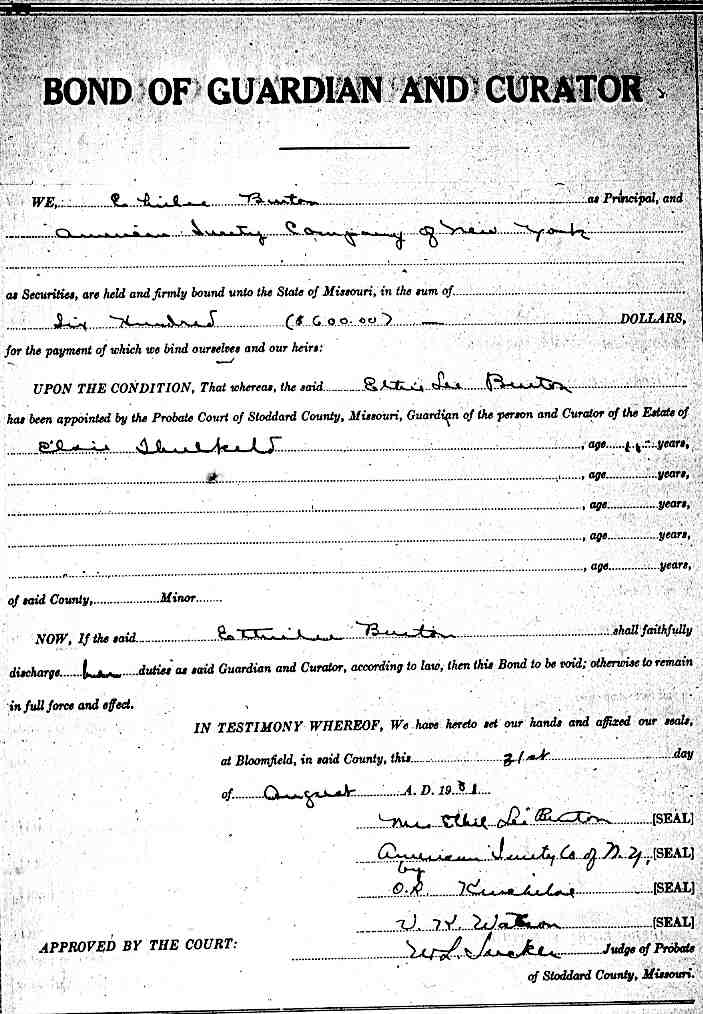 BOND OF GUARDIAN AND CURATOR
WE, Burton as Principal, and
American Surety Company of New York
as Securities, are held and firmly bound unto the State of Missouri, in the sum of
Six Hundred ($600.00) — DOLLARS,
for the payment of which we bind ourselves and our heirs:
UPON THE CONDITION, That whereas, the said Lee Burton
has been appointed by the Probate Court of Stoddard County, Missouri, Guardian of the person and Curator of the Estate of
Elsie Thulkeld, age years,
, age years,
, age years,
, age years,
, age years,
of said County, Minor
NOW, If the said Burton shall faithfully
discharge her duties as said Guardian and Curator, according to law, then this Bond to be void; otherwise to remain
in full force and effect.
IN TESTIMONY WHEREOF, We have hereto set our hands and affixed our seals,
at Bloomfield, in said County, this 31st day
of August A. D. 19
Mrs Ethel Lee Burton [SEAL]
American Surety Co of N.Y, [SEAL]
by
O.R [SEAL]
V. K. Watson [SEAL]
APPROVED BY THE COURT: Judge of Probate
of Stoddard County, Missouri.